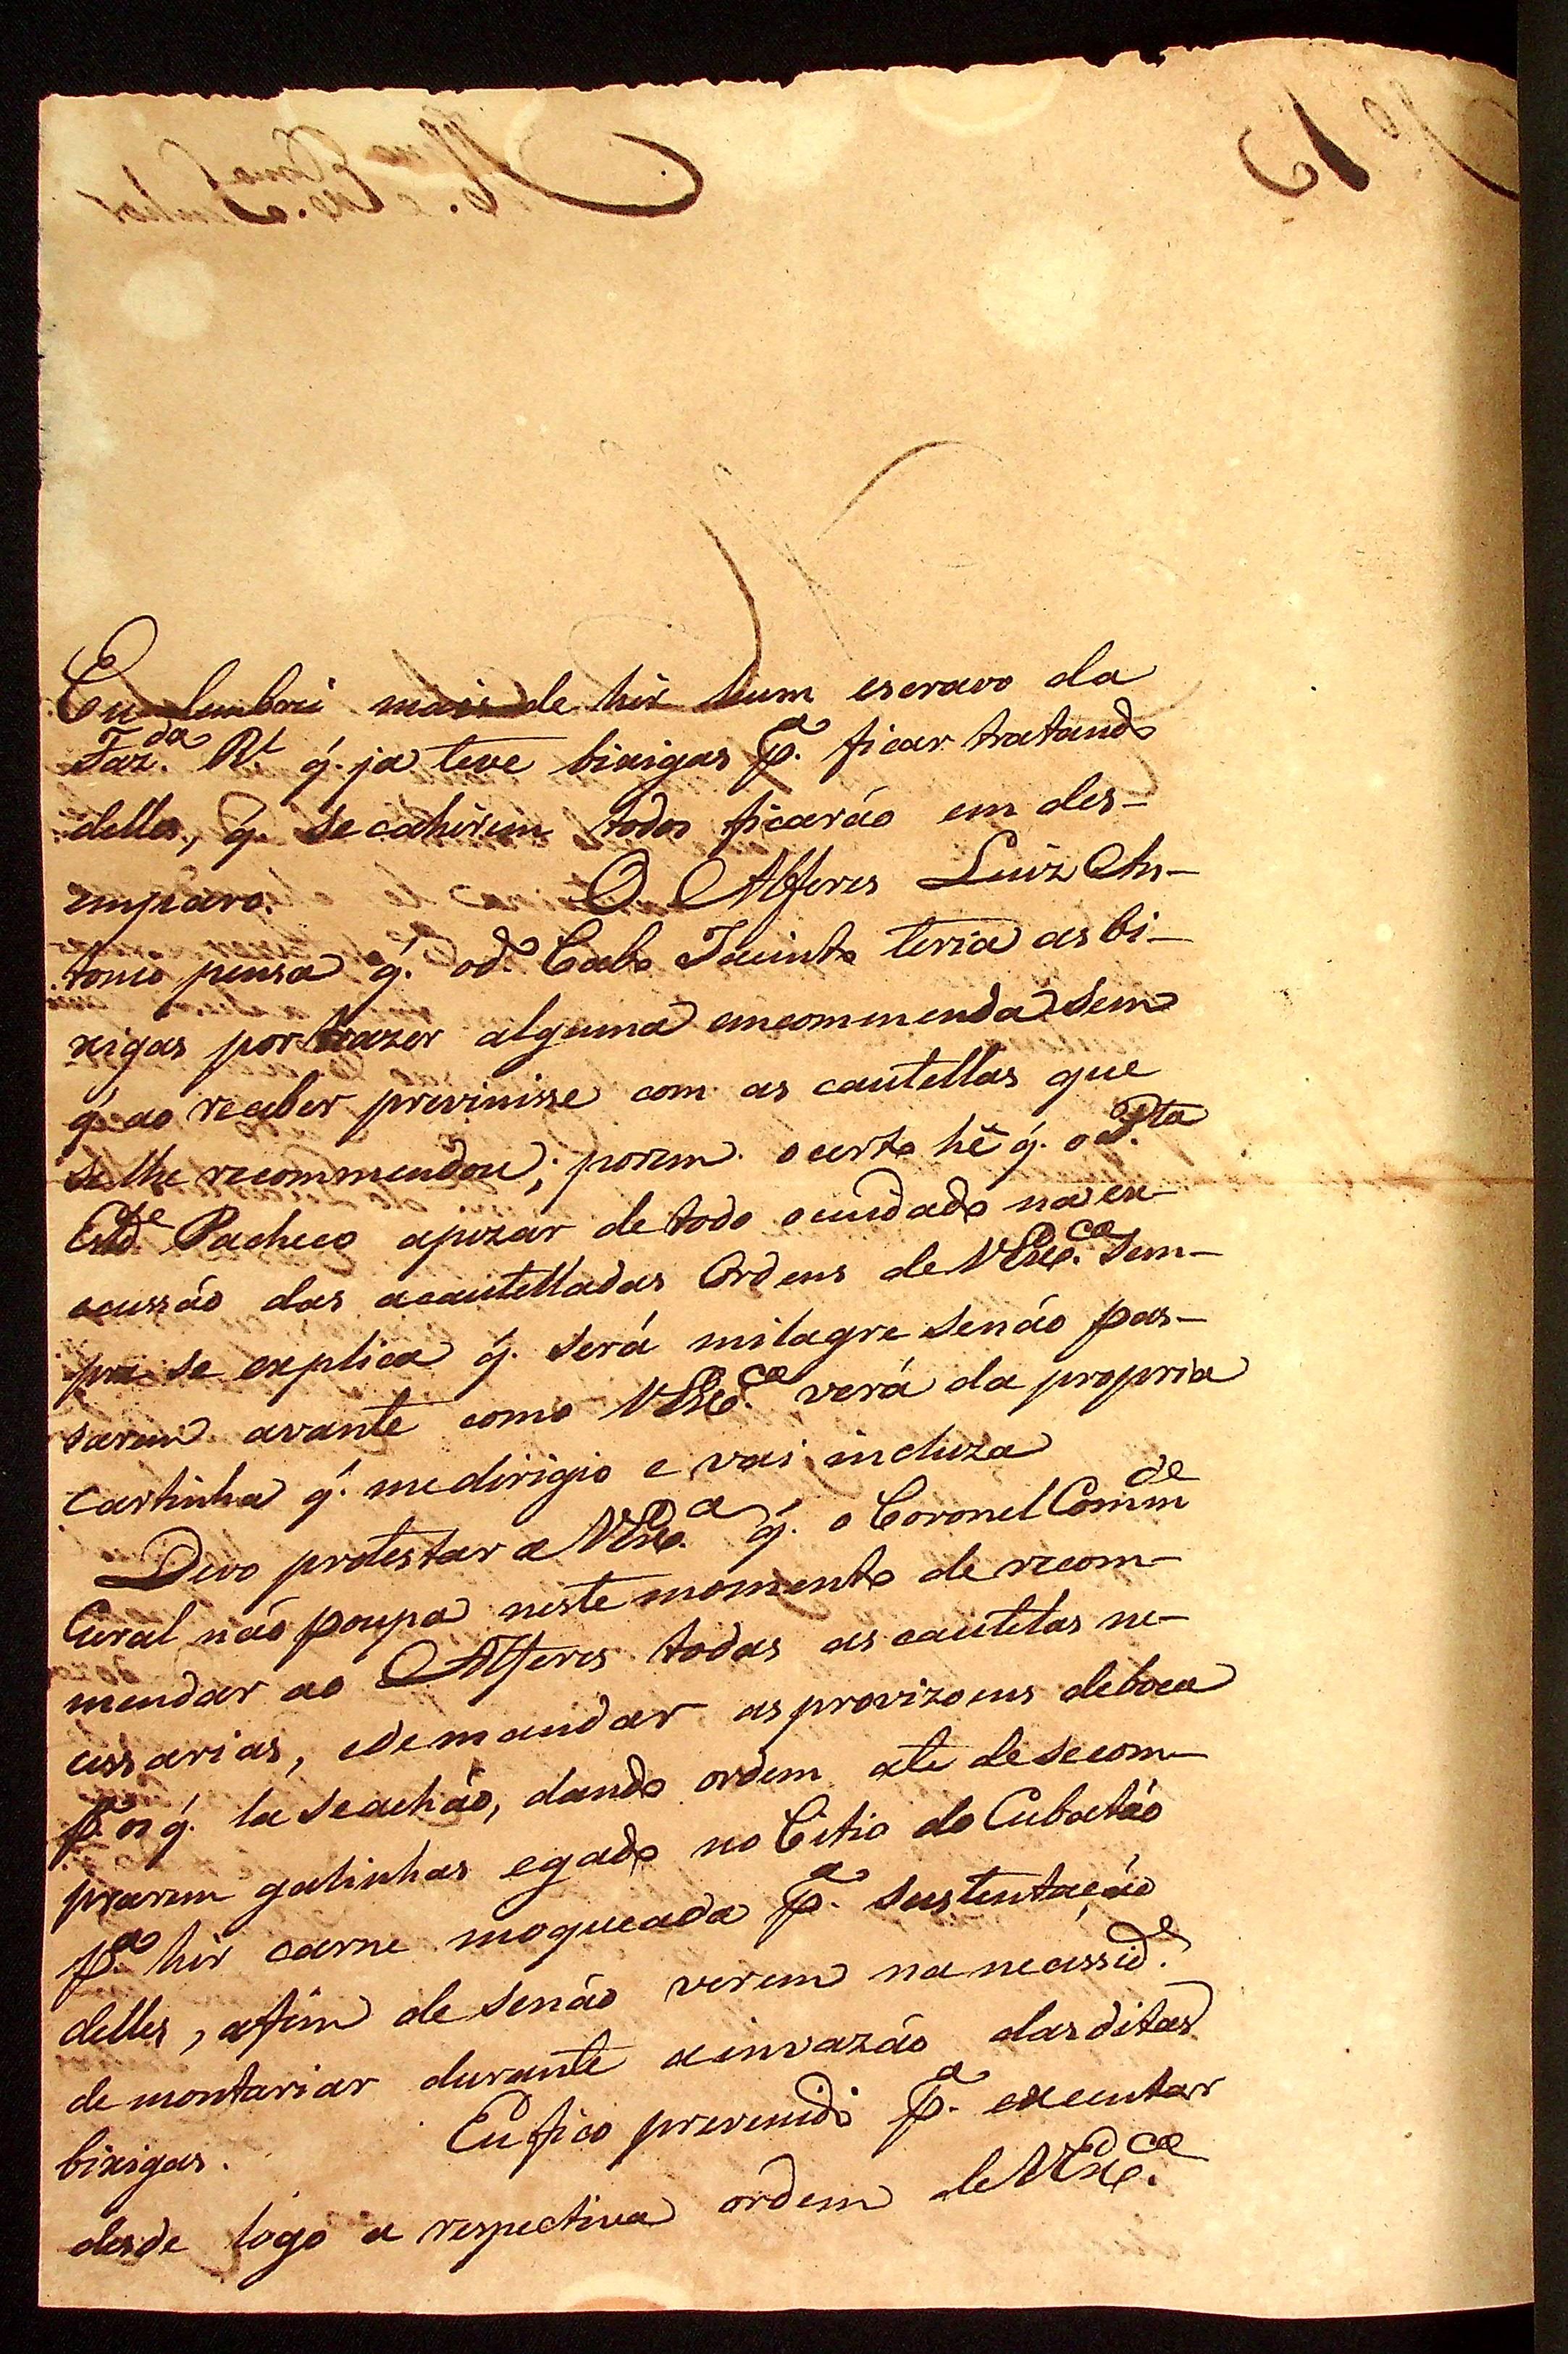 Eu lembrei mais de hir hum escravo da
Faz.da R.l q. ja teve bixigas p.a ficar tratando
delles, q. se cahirem todos ficaráo em des-
emparo. O Alferes Luiz An-
tonio pensa q. o d.o Cabo Jacinto teria as bi-
xigas por trazer alguma emcommenda sem
q. ao receber previnisse com as cautellas que
se lhe recommendou; porem o certo hé q. o
Pacheco apezar de todo o cuidado na ex-
ecussáo das acautelladas Ordens de VEx.ca sem-
pre se explica q. será milagre senáo pas-
sarem avante como VEx.ca verá da propria
cartinha q. me dirigio e vai incluza
Devo protestar a VEx.a q. o Coronel Comm.de
Geral náo poupa neste momento de recom-
mendar ao Alferes todas as cautelas ne-
cessarias, e de mandar as provizoens de boca
p.a os q. la se acháo, dando ordem ate de se com-
prarem galinhas e gado no Citio do Cubatáo
p.a hir carne moqueada p.a sustentaçáo
delles, afim de senáo verem na necessid.e
de montariar durante a invazáo das ditas
bixigas. Eu fico prevenido p.a executar
desde logo a respectiva ordem de VEx.ca